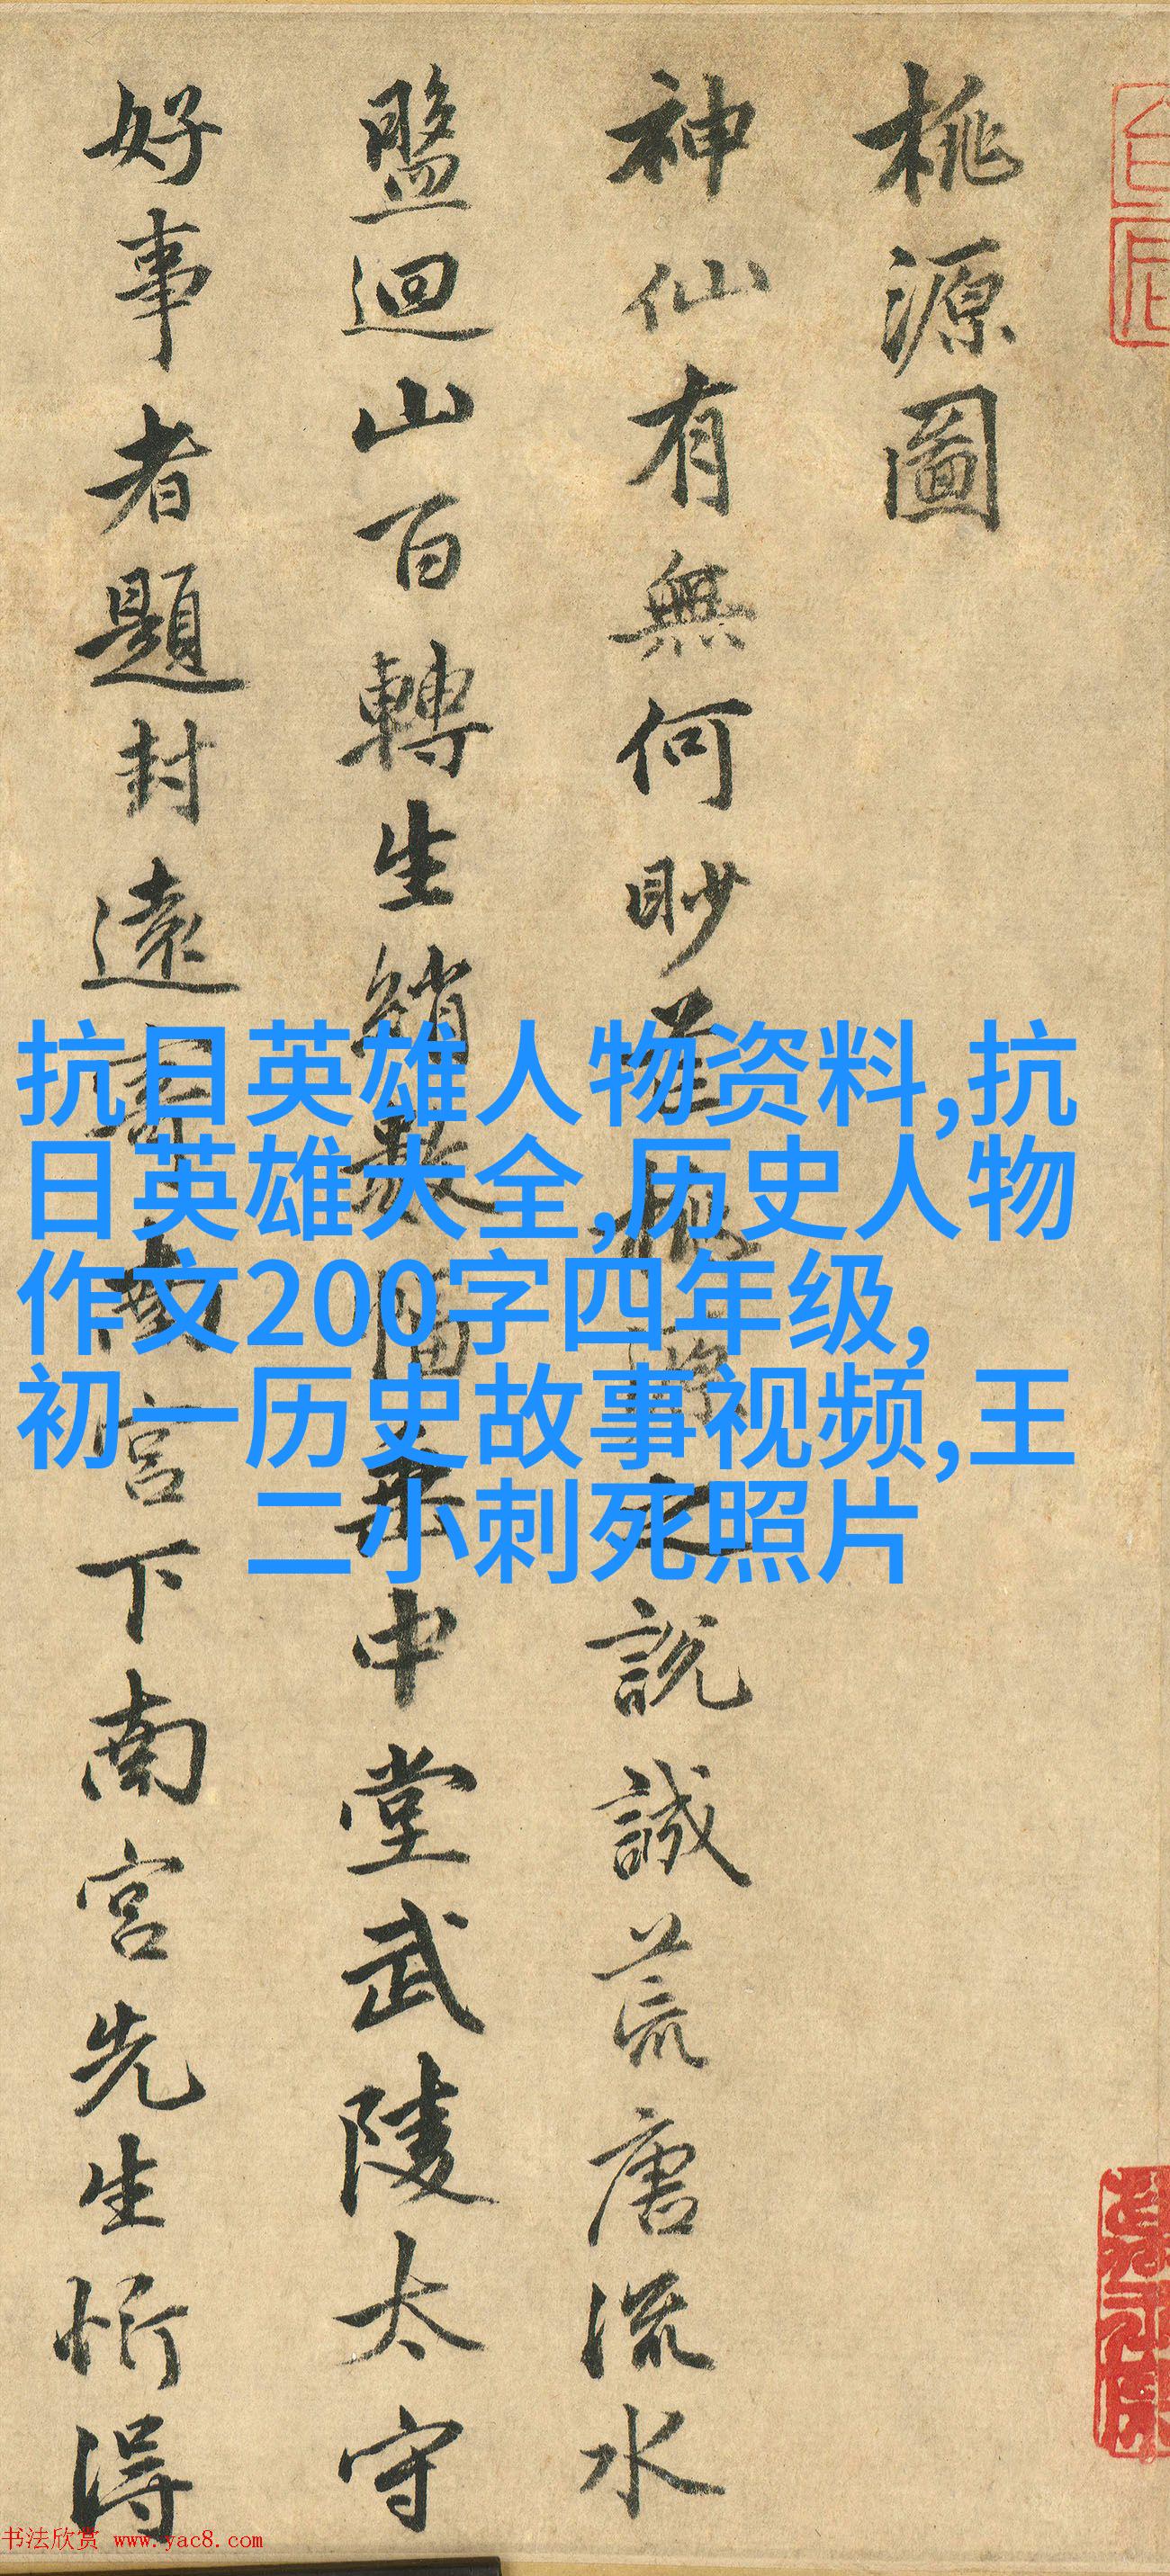 桃源圖
神仙有無何眇芒桃源之說誠荒唐流水
盤迴山百轉生綃數幅垂中堂武陵太守
好事者題封遠寄南宮下南宮先生忻得
抗日英雄人物资料,抗
日英雄大全,历史人物
作文200字四年级,
初一历史故事视频,王
二小刺死照片
书法欣赏 www.yac8.com